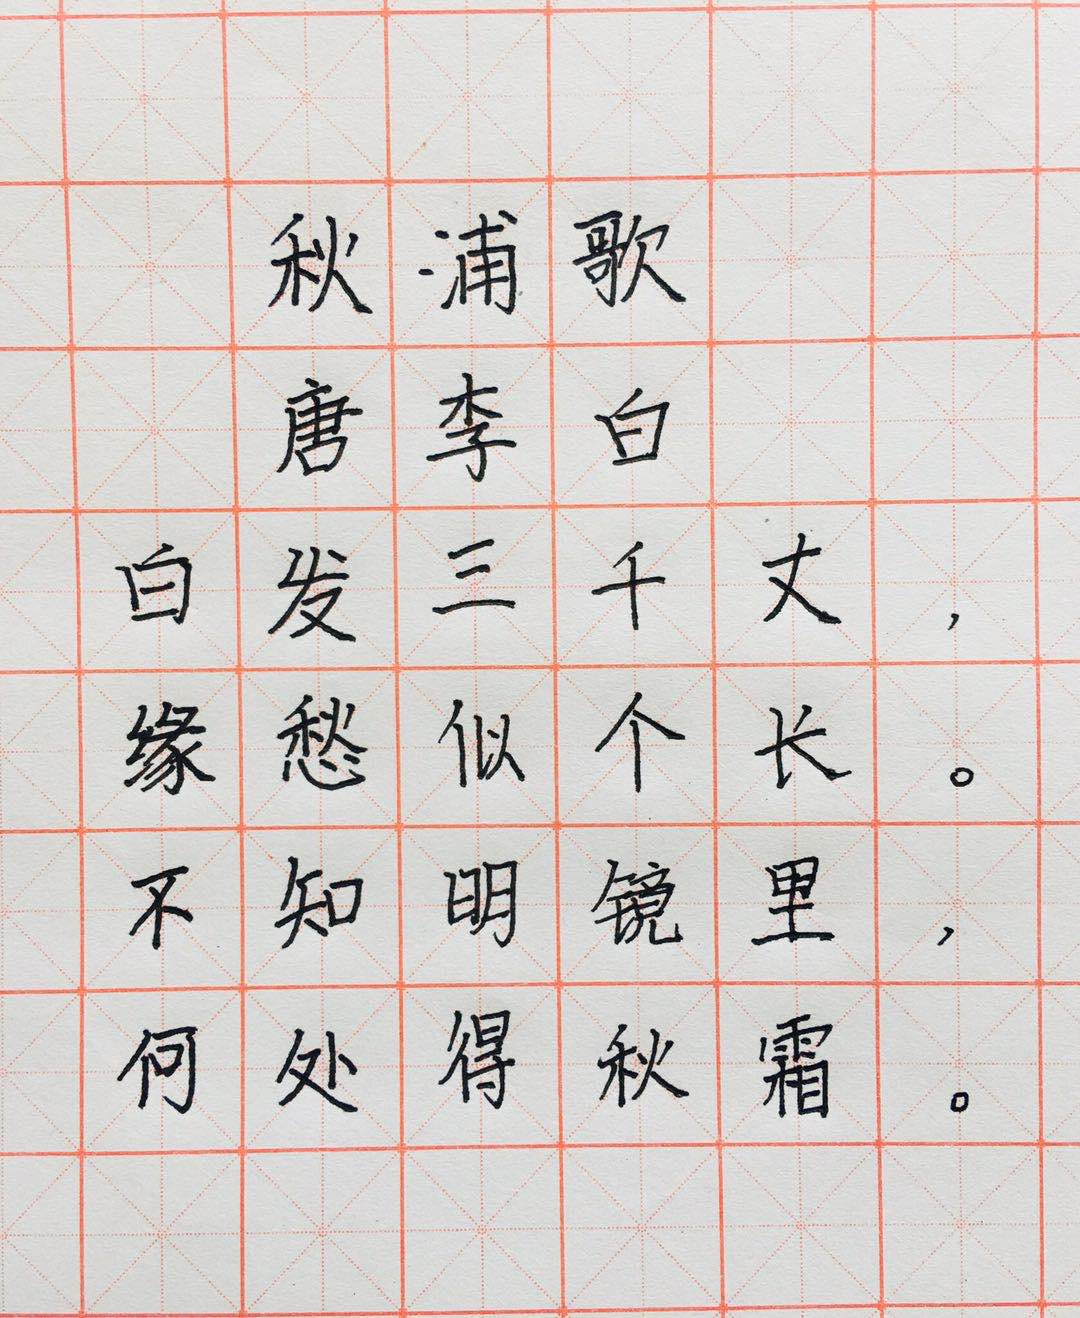 秋浦歌
唐李白
白发三千丈，
缘愁似个长。
不知明镜里，
何处得秋霜。